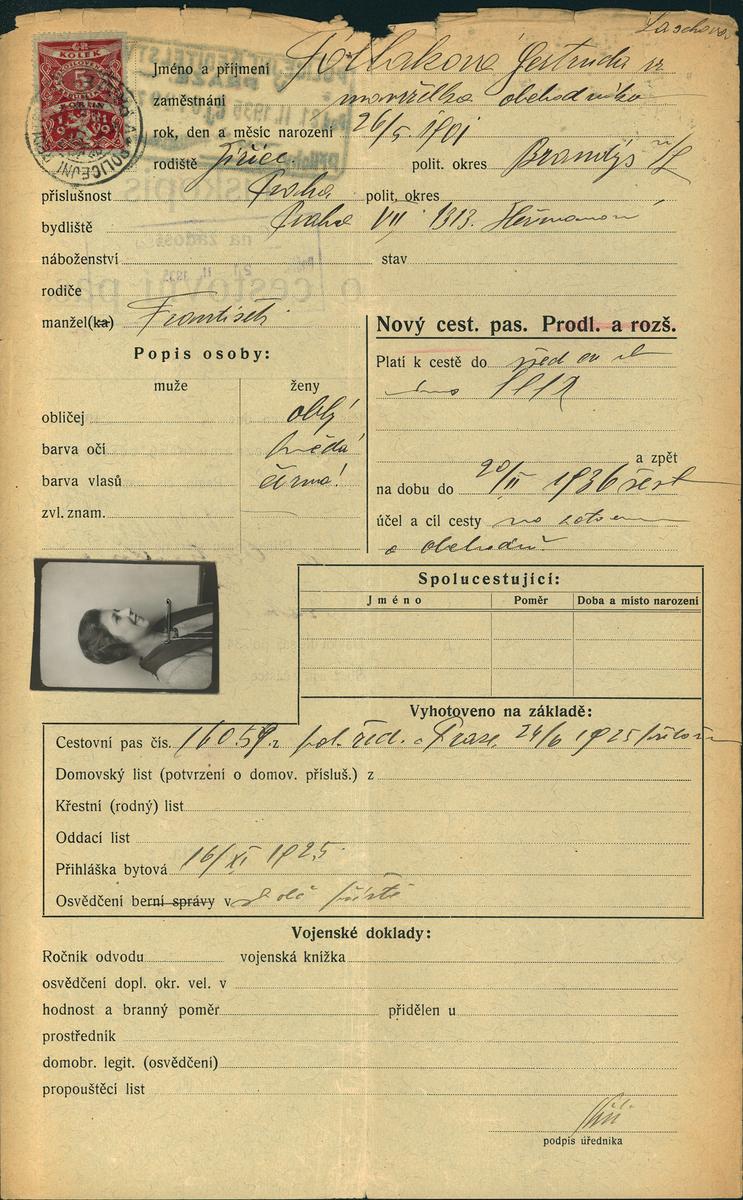 KOLEK
5
Jméno a příjmení Gertruda
zaměstnání manželka obchodníka
rok, den a měsíc narození 26/5 1901
rodiště Jiřice polit. okres Brandýs n/L
příslušnost Praha polit. okres
bydliště Praha VII 1313.
náboženství stav
rodiče
manžel(ka) František
Nový cest. pas. Prodl. a rozš.
Popis osoby:
Platí k cestě do
muže ženy
obličej oblý
barva očí hnědá
barva vlasů černá
zvl. znam.
a zpět
na dobu do 20/II 1936
účel a cíl cesty
a obchodní
Spolucestující:
Jméno Poměr Doba a místo narození
Vyhotoveno na základě:
Cestovní pas čís. 16059 pol. řed. v Praze, 24/6 1925
Domovský list (potvrzení o domov. přísluš.) z
Křestní (rodný) list
Oddací list
Přihláška bytová 16/XI 1925
Osvědčení berní správy v
Vojenské doklady:
Ročník odvodu vojenská knížka
osvědčení dopl. okr. vel. v
hodnost a branný poměr přidělen u
prostředník
domobr. legit. (osvědčení)
propouštěcí list
podpis úředníka